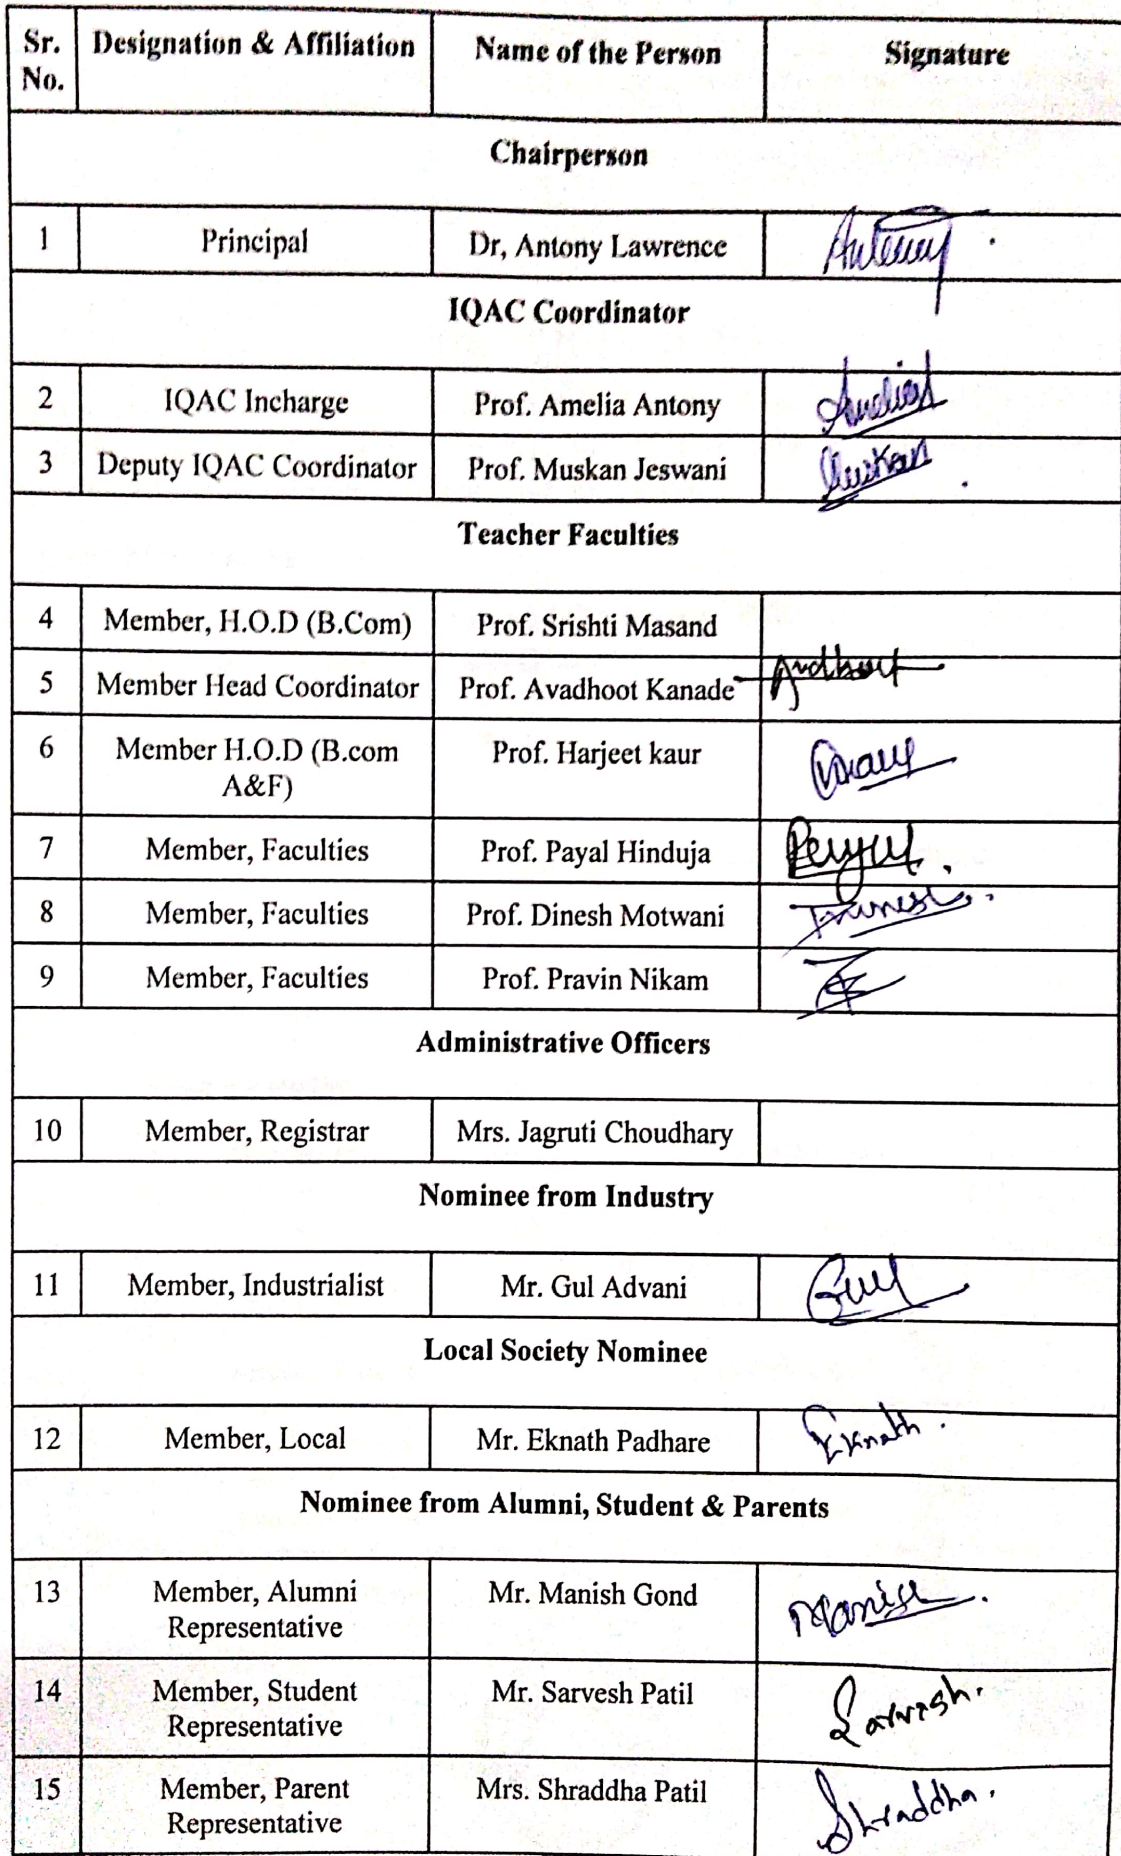 Sr. No. Designation & Affiliation Name of the Person Signature
Chairperson
1 Principal Dr, Antony Lawrence Antony
IQAC Coordinator
2 IQAC Incharge Prof. Amelia Antony Amelia
3 Deputy IQAC Coordinator Prof. Muskan Jeswani Muskan
Teacher Faculties
4 Member, H.O.D (B.Com) Prof. Srishti Masand
5 Member Head Coordinator Prof. Avadhoot Kanade
6 Member H.O.D (B.com Prof. Harjeet kaur
A&F)
7 Member, Faculties Prof. Payal Hinduja
8 Member, Faculties Prof. Dinesh Motwani
9 Member, Faculties Prof. Pravin Nikam
Administrative Officers
10 Member, Registrar Mrs. Jagruti Choudhary
Nominee from Industry
11 Member, Industrialist Mr. Gul Advani Gul
Local Society Nominee
12 Member, Local Mr. Eknath Padhare Eknath.
Nominee from Alumni, Student & Parents
13 Member, Alumni Mr. Manish Gond
Representative
14 Member, Student Mr. Sarvesh Patil Sarvesh.
Representative
15 Member, Parent Mrs. Shraddha Patil Shraddha.
Representative